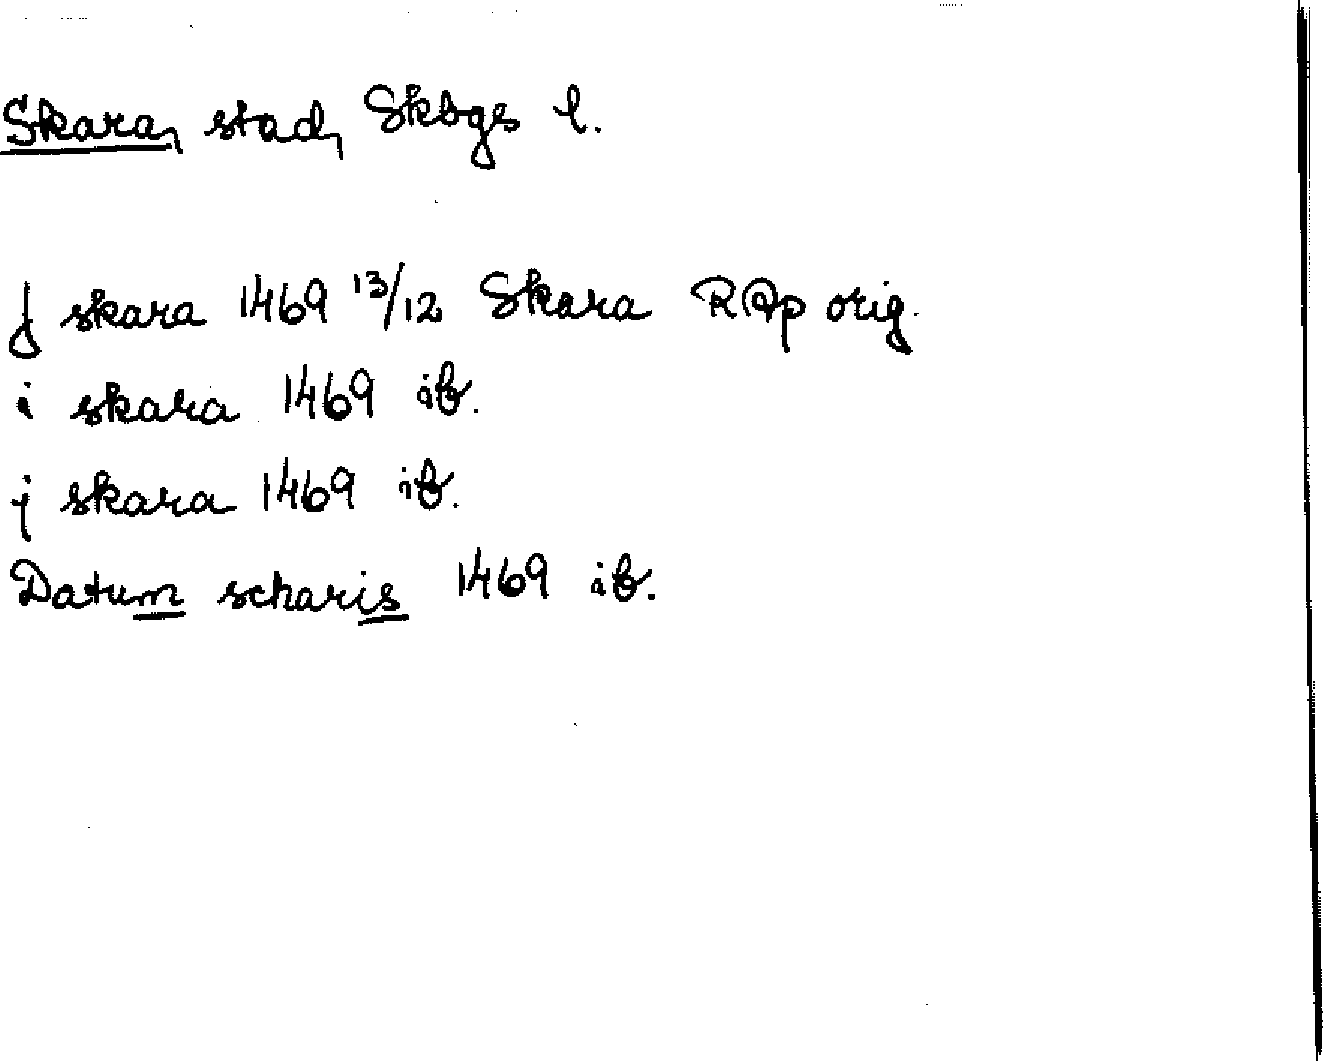 Skara, stad, Skbgs l.
J skara 1469 13/12 Skara RAp orig.
i skara 1469 ib.
j skara 1469 ib.
Datum scharis 1469 ib.